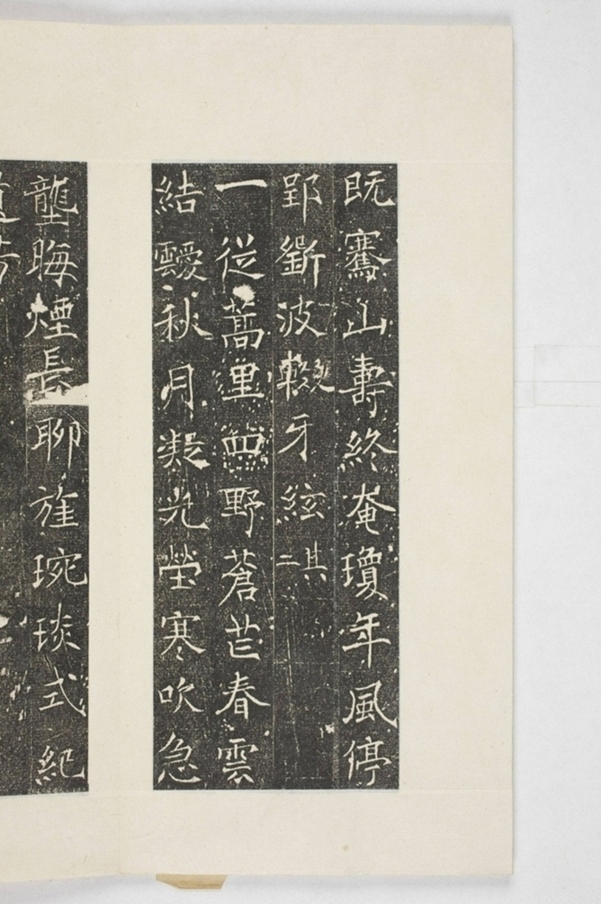 既騫山壽終奄瓊年風停
郢斲波輟牙絃其二
一從蒿里四野蒼芒春雲
結靉秋月凝光塋寒吹急
壟晦煙長聊旌琬琰式紀